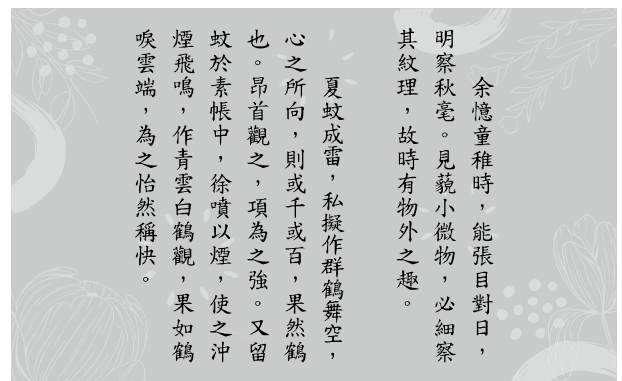 余憶童稚時，能張目對日，
明察秋毫。見藐小微物，必細察
其紋理，故時有物外之趣。
夏蚊成雷，私擬作群鶴舞空，
心之所向，則或千或百，果然鶴
也。昂首觀之，項為之強。又留
蚊於素帳中，徐噴以煙，使之沖
煙飛鳴，作青雲白鶴觀，果如鶴
唳雲端，為之怡然稱快。